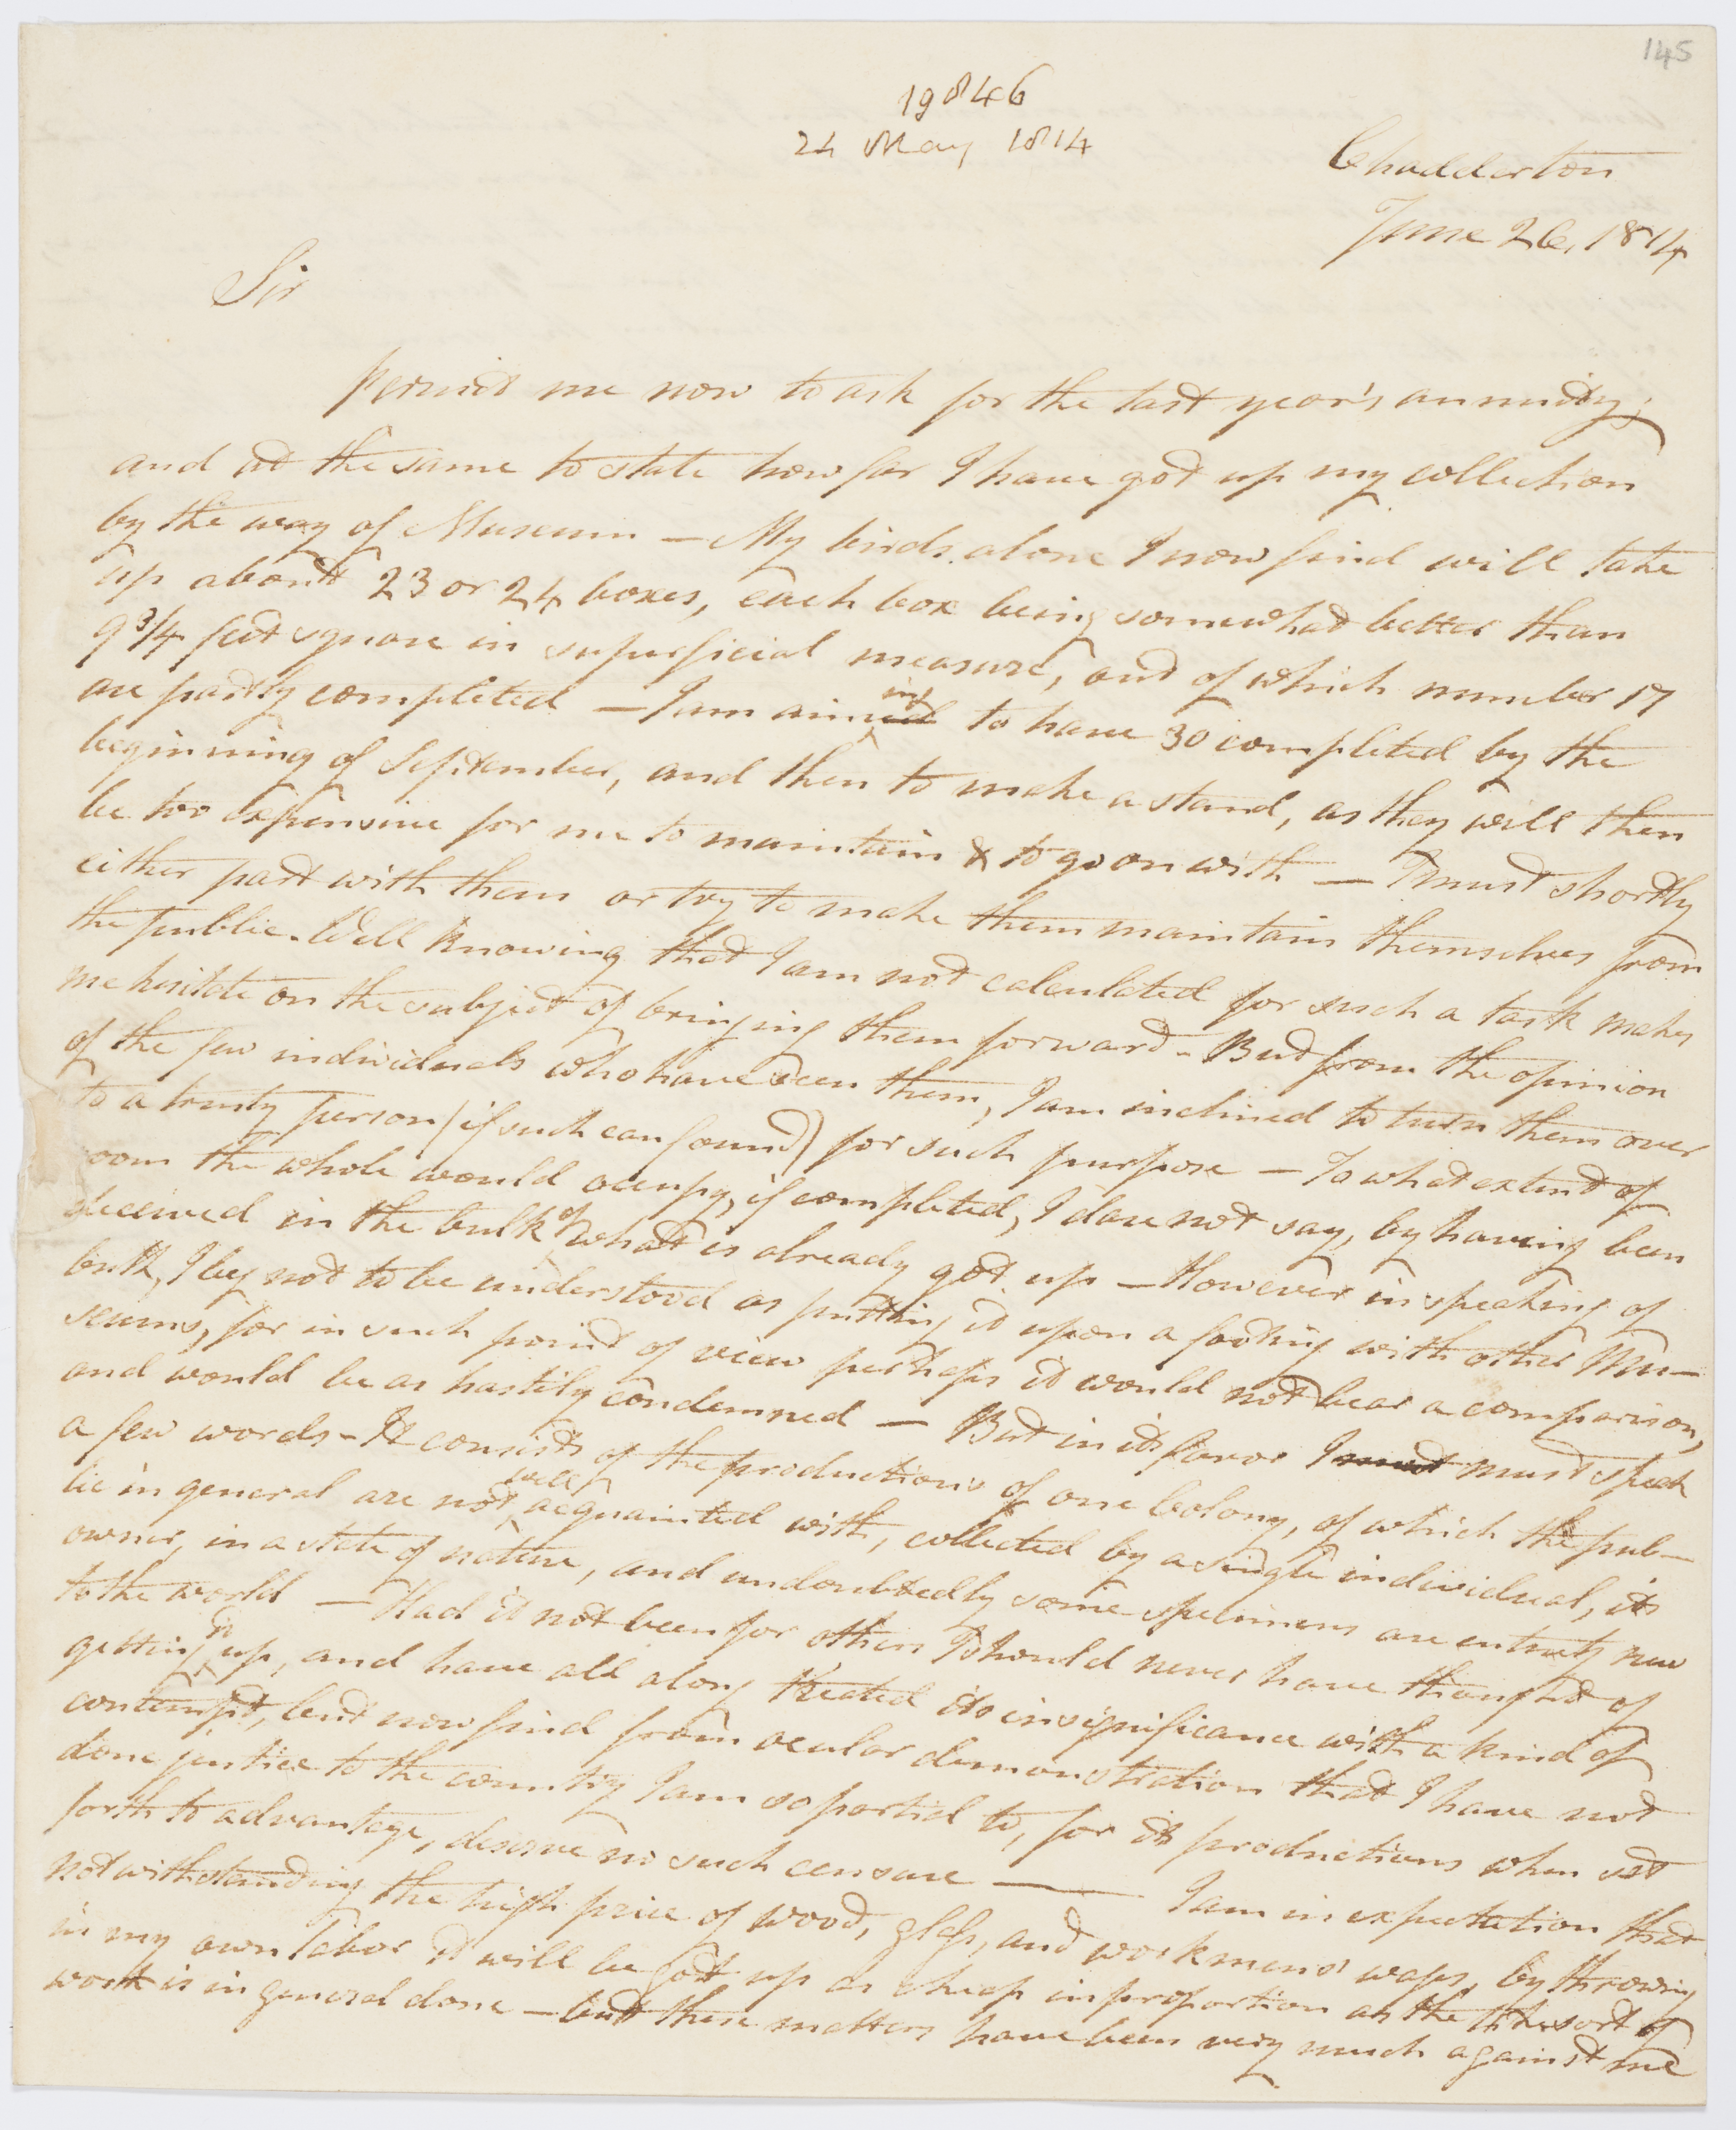 145
19846
24 May 1814
Chadderton
June 26, 1814
Sir
Permit me now to ask for the last year's annuity;
and at the same to state how far I have got up my collection
by the way of Museum — My birds alone I now find will take
up about 23 or 24 boxes, each box being somewhat better than
9 3/4 feet square in superficial measure, and of which number 17
are partly completed — I am aiming to have 30 completed by the
beginning of September, and then to make a stand, as they will then
be too expensive for me to maintain & to go on with — I must shortly
either part with them or try to make them maintain themselves from
the public. Well knowing that I am not calculated for such a task makes
me hesitate on the subject of bringing them forward — But from the opinion
of the few individuals who have seen them, I am inclined to turn them over
to a trusty person (if such can found) for such purpose — To what extent of
room the whole would occupy, if completed, I dare not say, by having been
deceived in the bulk of what is already got up — However in speaking of
bulk, I beg not to be understood as putting it upon a footing with other Mu-
seums, for in such point of view perhaps it would not bear a comparison,
and would be as hastily condemned — But in its favor I must must speak
a few words — It consists of the productions of one Colony, of which the pub-
lic in general are not well acquainted with, collected by a single individual, its
owner, in a state of nature, and undoubtedly some specimens are entirely new
to the world — Had it not been for others I should never have thought of
getting it up, and have all along treated its insignificance with a kind of
contempt, but now find from ocular demonstration that I have not
done justice to the country I am so partial to, for its productions when set
forth to advantage, deserve no such censure — I am in expectation that
notwithstanding the high price of wood, glass, and workmens' wages, by throwing
in my own labor it will be got up as cheap in proportion as the like sort of
work is in general done — but these matters have been very much against me